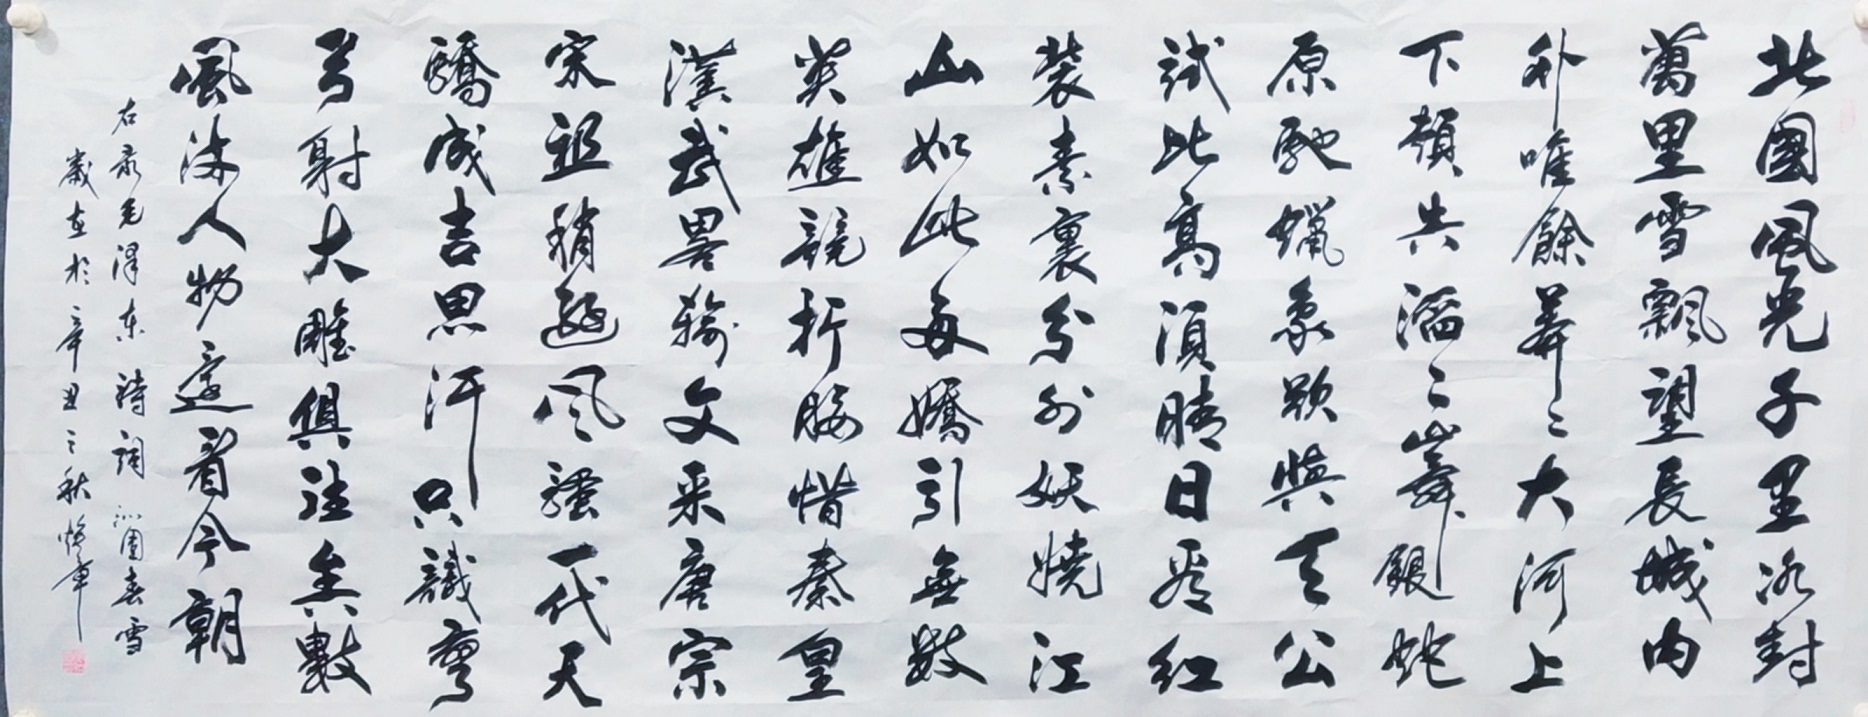 北國風光千里冰封
萬里雪飄望長城內
外唯餘莽〻大河上
下頓失滔〻山舞銀蛇
原馳蠟象欲與天公
試比高須晴日看紅
裝素裹分外妖嬈江
山如此多嬌引無數
英雄競折腰惜秦皇
漢武略輸文采唐宗
宋祖稍遜风騷一代天
驕成吉思汗只識彎
弓射大雕俱往矣數
風流人物還看今朝
右录毛澤东詩詞沁園春雪
歲在於辛丑之秋